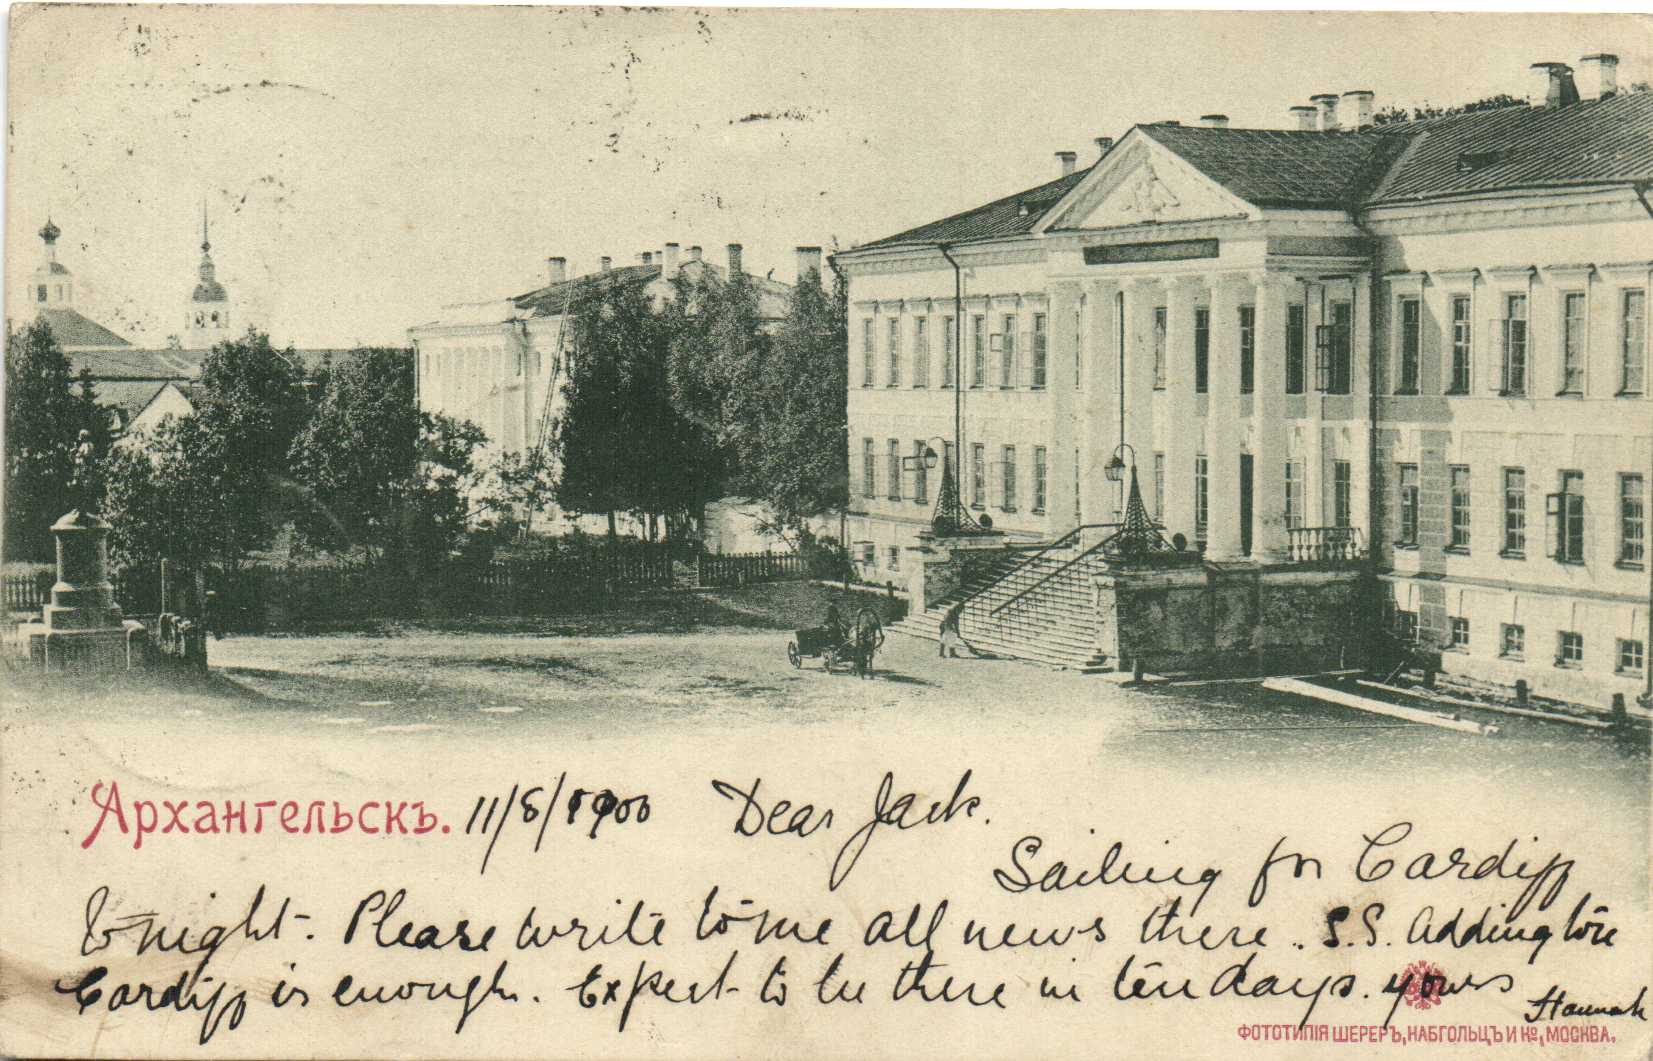 Архангельскъ. 11/8/1900 Dear Jack.
Sailing for Cardiff
to-night. Please write to me all news there. S.S. Addington
Cardiff is enough. Expect to be there in ten days. yours
Hannah
ФОТОТИПІЯ ШЕРЕРЪ, НАБГОЛЬЦЪ И Ко, МОСКВА.